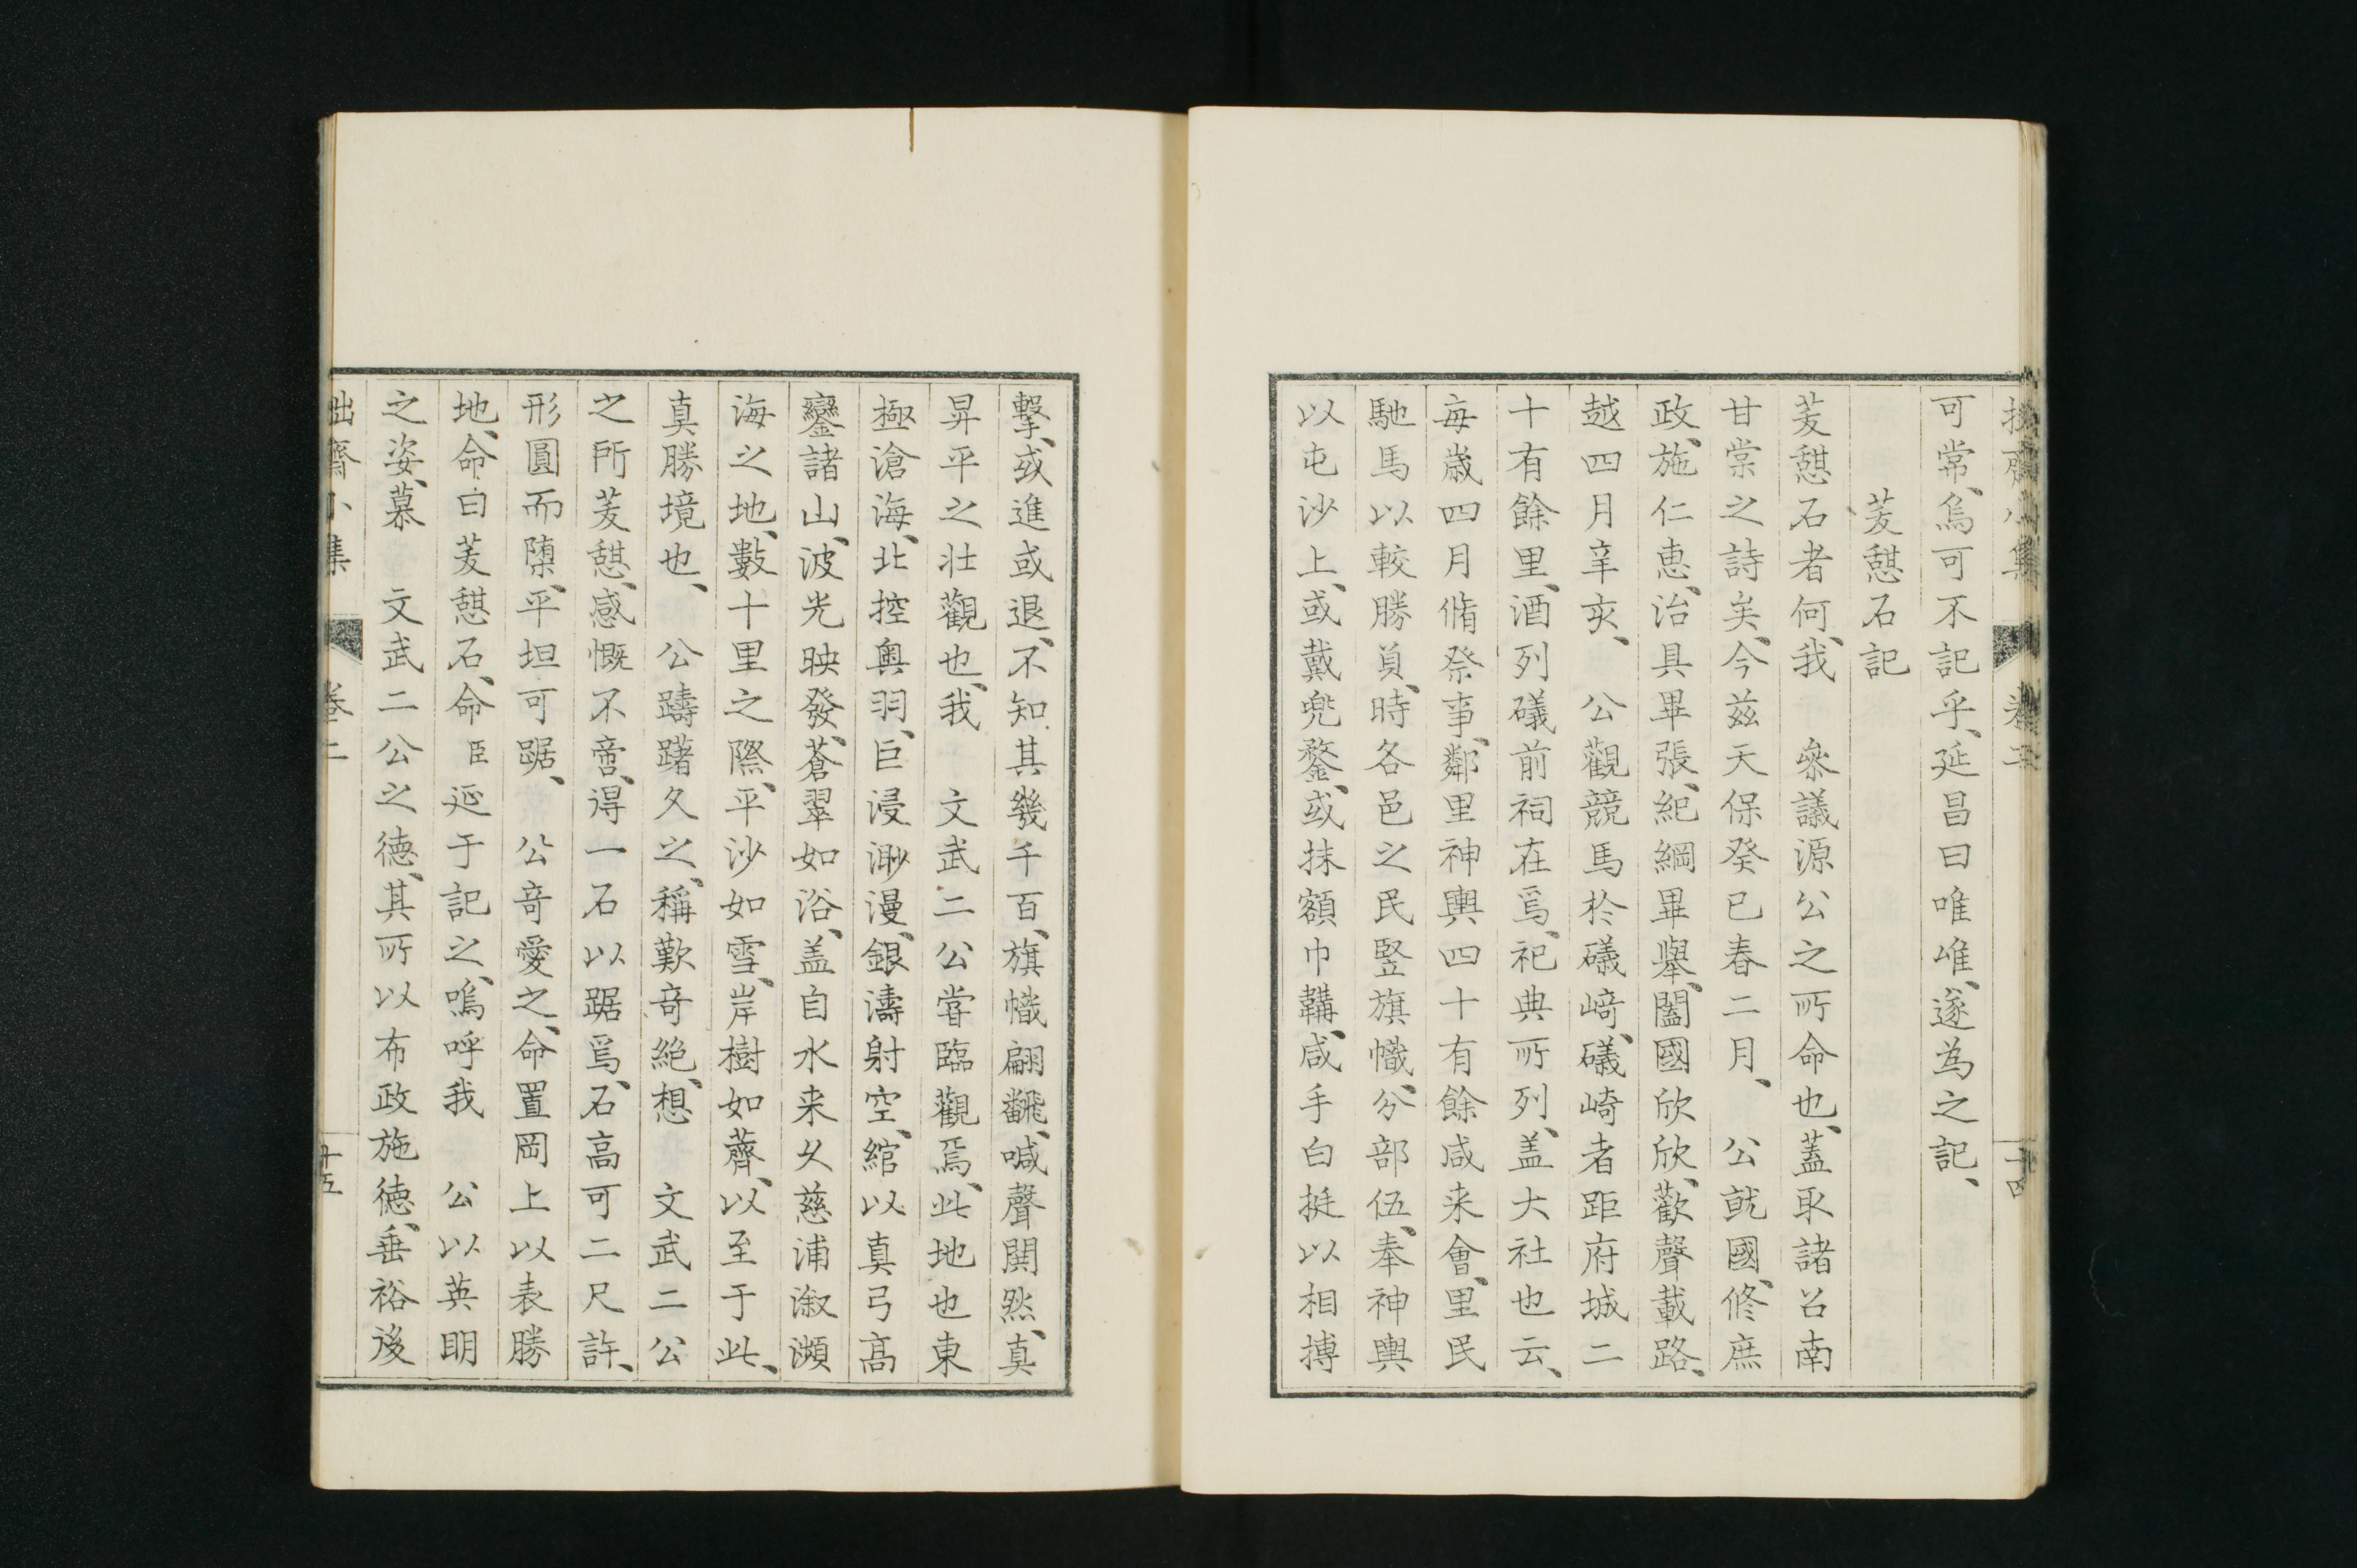 拙齋小集 卷二 十四
可常、烏可不記乎、延昌曰唯唯、遂為之記、
茇憇石記
茇憇石者何、我 叅議源公之所命也、蓋取諸召南
甘棠之詩矣、今茲天保癸巳春二月、 公就國、修庶
政、施仁惠、治具畢張、紀綱畢舉、闔國欣欣、歡聲載路、
越四月辛亥、 公觀競馬於礒﨑、礒崎者距府城二
十有餘里、酒列礒前祠在焉、祀典所列、盖大社也云、
每歲四月脩祭事、鄰里神輿四十有餘咸来會、里民
馳馬以較勝負、時各邑之民竪旗幟、分部伍、奉神輿
以屯沙上、或戴兜鍪、或抹額巾鞲、咸手白挺以相搏
擊、或進或退、不知其幾千百、旗幟翩翻、喊聲鬨然、真
昇平之壮觀也、我 文武二公甞臨觀焉、此地也東
極滄海、北控奥羽、巨浸渺漫、銀濤射空、綰以真弓高
鑾諸山、波光映發、蒼翠如浴、盖自水来久慈浦溆瀕
海之地、數十里之際、平沙如雪、岸樹如薺、以至于此、
真勝境也、 公躊躇久之、稱歎奇絶、想 文武二公
之所茇憇、感慨不啻、得一石以踞焉、石高可二尺許、
形圓而隋、平坦可踞、 公奇愛之、命置岡上以表勝
地、命曰茇憇石、命臣延于記之、嗚呼我 公以英明
之姿、慕 文武二公之德、其所以布政施徳、垂裕後
拙齋小集 卷二 十五